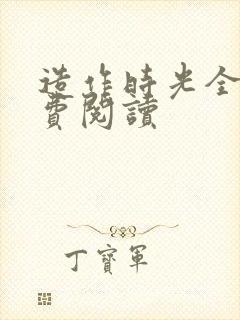 造作時光全
費閱讀
丁寶軍